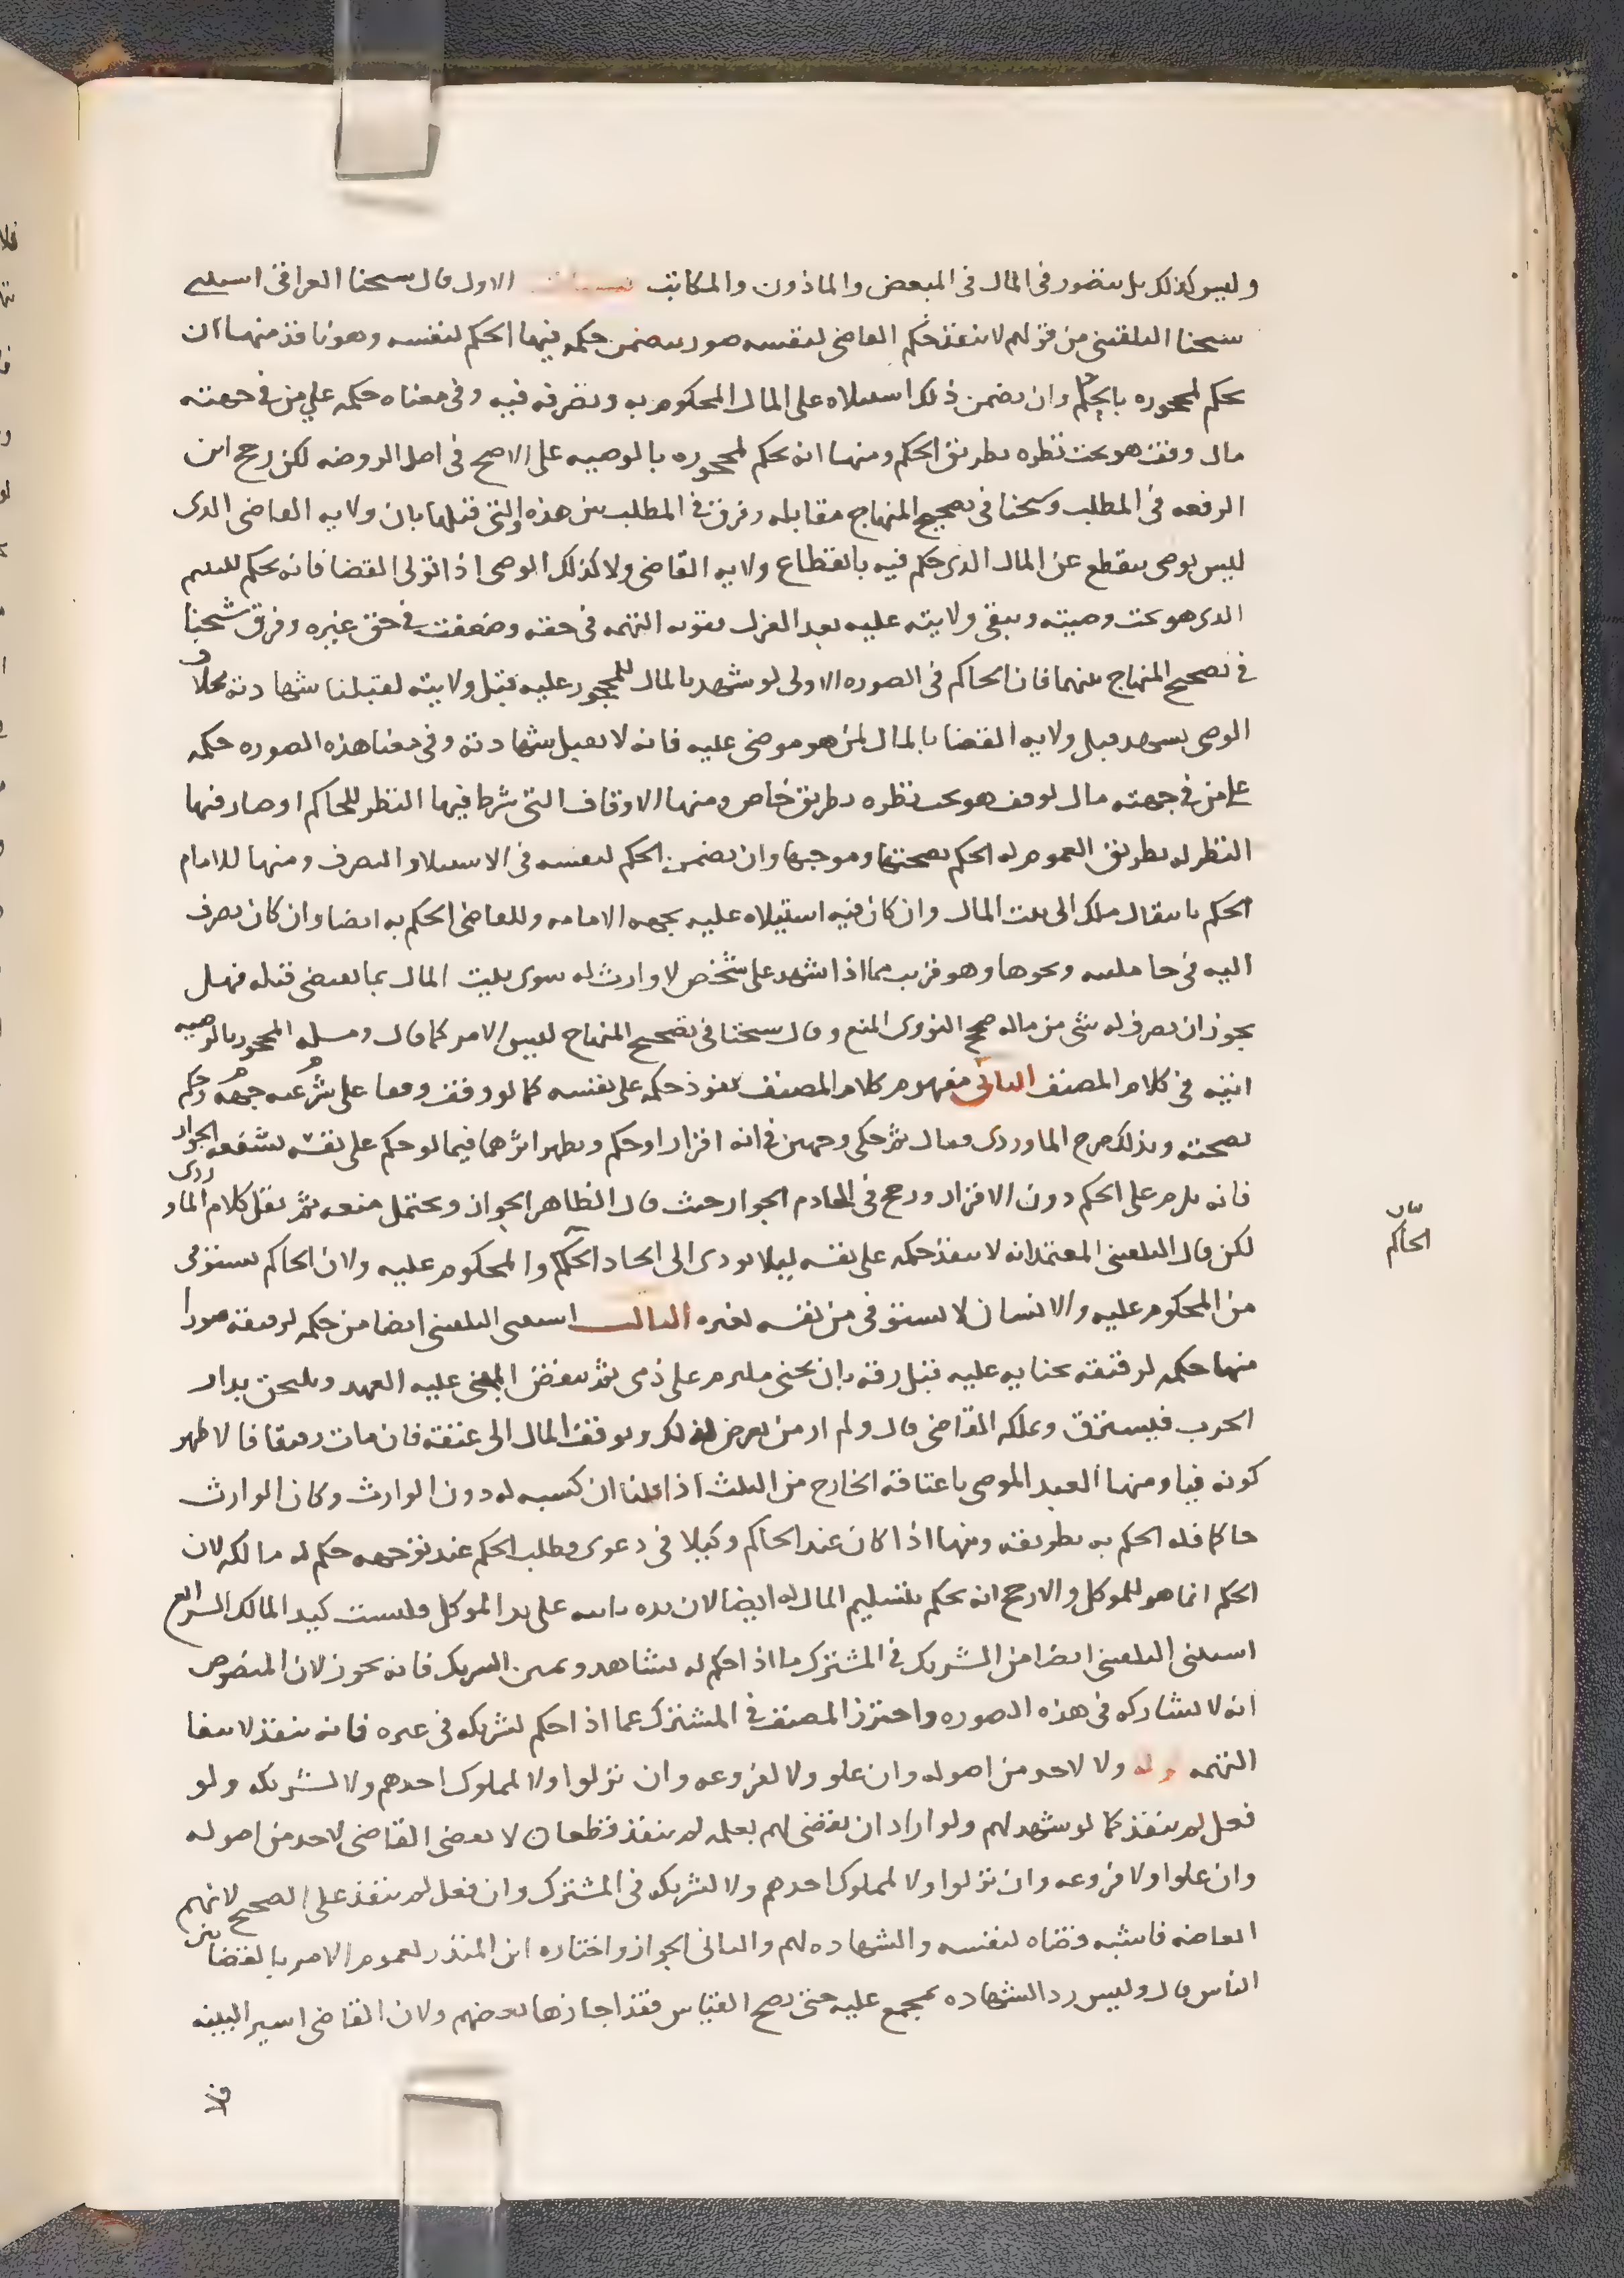 وليس كذلك بل يتصور في المال في المبعض والماذون والمكاتب تنبيهات الاول قال شيخنا العراقي استثنى
شيخنا البلقيني من قولهم لا ينفذ حكم القاضي لنفسه صور يتضمن حكمه فيها الحكم لنفسه وهو نافذ منها ان
يحكم لمحجوره بالحكم وان تضمن ذلك استيلاه على المال المحكوم به وتصرفه فيه وفي معناه حكمه على من في جهته
مال وقف هو تحت نظره بطريق الحكم ومنها انه يحكم لمحجوره بالوصيه على الاصح في اصل الروضه لكن رجح ابن
الرفعه في المطلب وشيخنا في تصحيح المنهاج مقابله وفرق في المطلب بين هذه والتي قبلها بان ولايه القاضي الذي
ليس بوصي تنقطع عن المال الذي حكم فيه بانقطاع ولايه القاضي ولا كذلك الوصي اذا تولى القضا فانه يحكم لليتيم
الذي هو تحت وصيته وتبقى ولايته عليه بعد العزل فقويت التهمه في حقه وضعفت في حق غيره وفرق شيخنا
في تصحيح المنهاج بينهما فان الحاكم في الصوره الاولى لو شهد بالمال للمحجور عليه قبل ولايته لقبلنا شهادته بخلاف
الوصي يشهد قبل ولايه القضا بالمال لمن هو موصى عليه فانه لا تقبل شهادته وفي معنا هذه الصوره حكمه
على من في جهته مال لوقف هو تحت نظره بطريق خاص ومنها الاوقاف التي شرط فيها النظر للحاكم او صار فيها
النظر له بطريق العموم له الحكم بصحتها وموجبها وان تضمن الحكم لنفسه في الاستيلا والتصرف ومنها للامام
الحكم بانتقال ملك الى بيت المال وان كان فيه استيلاه عليه بجهه الامامه وللقاضي الحكم به ايضا وان كان يصرف
اليه في جامكيته ونحوها وهو قريب مما اذا شهد على شخص لا وارث له سوى بيت المال بما يقتضي قتله فهل
يجوز ان يصرف له شي من ماله صحح النووي المنع وقال شيخنا في تصحيح المنهاج ليس الامر كما قال ومسله المحجور بالوصيه
اتيه في كلام المصنف الثاني مفهوم كلام المصنف نفوذ حكمه على نفسه كما لو وقف وقفا على جهه وحكم
بصحته وبذلك صرح الماوردي فقال ثم حكى وجهين في انه اقرار او حكم ويظهر اثرهما فيما لو حكم على نفسه بشفعه الجوار
فانه يلزم على الحكم دون الاقرار ورجح في الخادم الجواز حيث قال الظاهر الجواز ويحتمل منعه ثم نقل كلام الماوردي
لكن قال البلقيني المعتمد انه لا ينفذ حكمه على نفسه ليلا يودي الى اتحاد الحاكم والمحكوم عليه ولان الحاكم يستوفي
بيان
الحاكم
من المحكوم عليه والانسان لا يستوفي من نفسه لغيره الثالث استثنى البلقيني ايضا من حكمه لرقيقه صورا
منها حكمه لرقيقه بجنايه عليه قبل رقه بان يجني ملتزم على ذمي ثم ينقض المجني عليه العهد ويلحق بدار
الحرب فيسترق ويملكه القاضي قال ولم ار من تعرض لذلك ويوقف المال الى عتقه فان مات رقيقا فالاظهر
كونه فيا ومنها العبد الموصى باعتاقه الخارج من الثلث اذا قلنا ان كسبه له دون الوارث وكان الوارث
حاكما فله الحكم به بطريقه ومنها اذا كان عند الحاكم وكيلا في دعوى وطلب الحكم عند توجهه حكم له مالكه لان
الحكم انما هو للموكل والارجح انه يحكم بتسليم المال له ايضا لان يده نايبه على يد الموكل وليست كيد المالك الرابع
استثنى البلقيني ايضا من الشريك في المشترك ما اذا حكم له بشاهد ويمين الشريك فانه يجوز لان المنصوص
انه لا يشاركه في هذه الصوره واحترز المصنف في المشترك عما اذا حكم لشريكه في غيره فانه ينفذ لانتفا
التهمه قوله ولا لاحد من اصوله وان علو ولا لفروعه وان نزلوا ولا لمملوك احدهم ولا لشريكه ولو
فعل لم ينفذ كما لو شهد لهم ولو اراد ان يقضي لهم بعلمه لم ينفذ قطعا ن لا يقضي القاضي لاحد من اصوله
وان علوا ولا فروعه وان نزلوا ولا لمملوك احدهم ولا لشريكه في المشترك وان فعل لم ينفذ على الصحيح لانهم
ابعاضه فاشبه قضاه لنفسه والشهاده لهم والثاني الجواز واختاره ابن المنذر لعموم الامر بالقضا بين
الناس قال وليس رد الشهاده بمجمع عليه حتى يصح القياس فقد اجازها بعضهم ولان القاضي اسير البينه
فلا